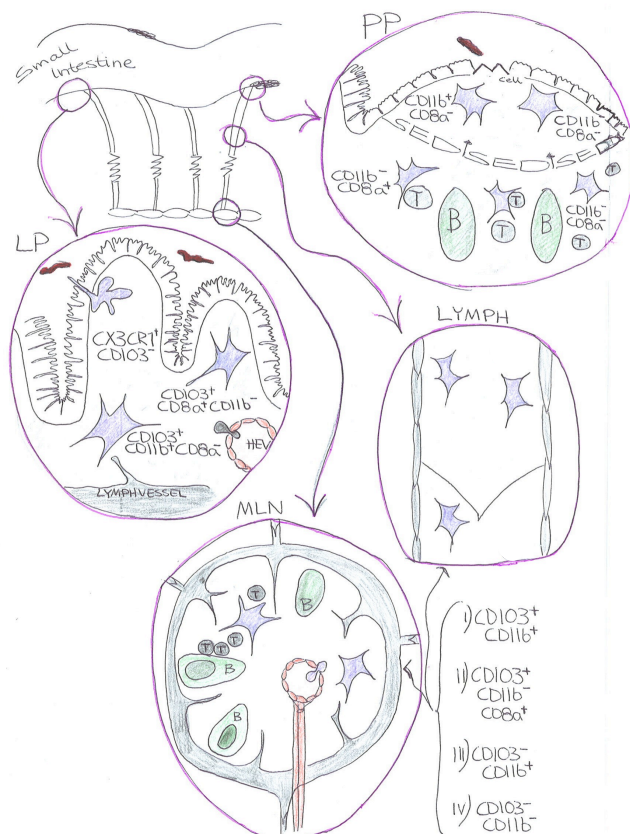 Small
Intestine
PP
CD11b+
CD8a-
Cell
CD11b-
CD8a-
SED SED SE
CD11b-
CD8a+
T
B
T
T
B
CD11b-
CD8a-
T
T
LP
CX3CR1+
CD103-
CD103+
CD8a+CD11b-
CD103+
CD11b+CD8a-
HEV
LYMPHVESSEL
LYMPH
MLN
T
B
T
T
T
B
B
I) CD103+
CD11b+
II) CD103+
CD11b-
CD8a+
III) CD103-
CD11b+
IV) CD103-
CD11b-